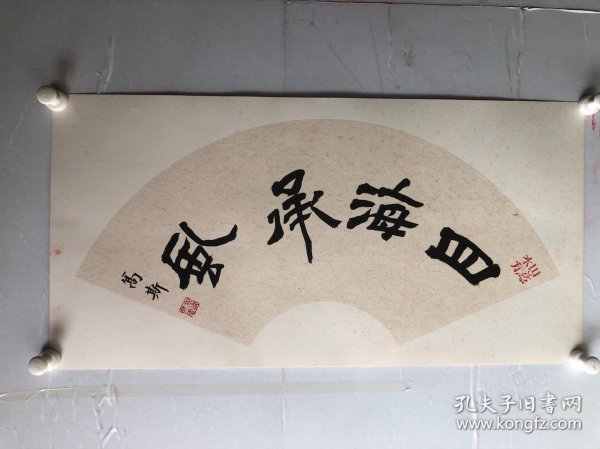 四海承風
高斯
孔夫子旧书网
www.kongfz.com